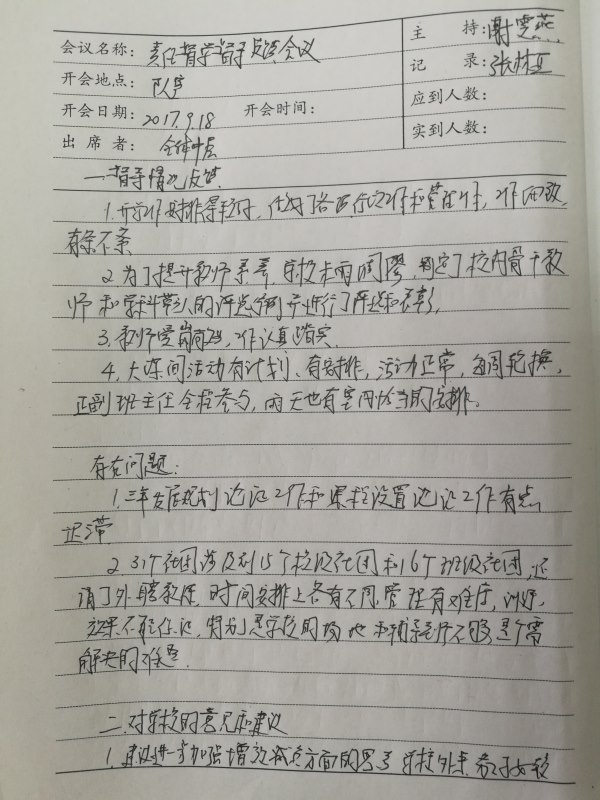 会议名称：责任督学督导反馈会议
主 持：谢雯燕
开会地点：队室
记 录：张林
开会日期：2017.9.18 开会时间：
应到人数：
出 席 者：全体中层
实到人数：
一.督导情况反馈
1.开学工作安排得较好，各项工作和管理工作，工作面细致
有条不紊
2.为了提升教师素养，学校未雨绸缪，制定了校内骨干教
师和学科带头人的评选细则并进行了评选和表彰，
3.教师爱岗敬业，工作认真踏实.
4.大课间活动有计划、有安排，活动正常，每周轮换，
正副班主任全程参与，雨天也有室内恰当的安排。
存在问题：
1.三年发展规划论证工作和课程设置论证工作有点
迟滞
2.31个社团涉及到15个校级社团和16个班级社团，还
请了外聘教师，时间安排上各有不同，管理有难度，训练
效果不能保证，特别是学校的场地和辅导老师不够，是个需
解决的难题.
二.对学校的意见和建议
1.建议进一步加强增效减负方面的思考 学校外来